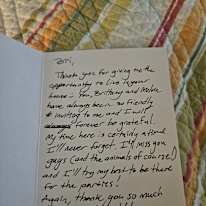 Terri,
Thank you for giving me the
opportunity to live in your
house! You, Brittany and Melva
have always been so friendly
& inviting to me, and I will
forever be grateful.
My time here is certainly one
I'll never forget. I'll miss you
guys (and the animals of course!)
and I'll try my best to be there
for the parties!
Again, thank you so much